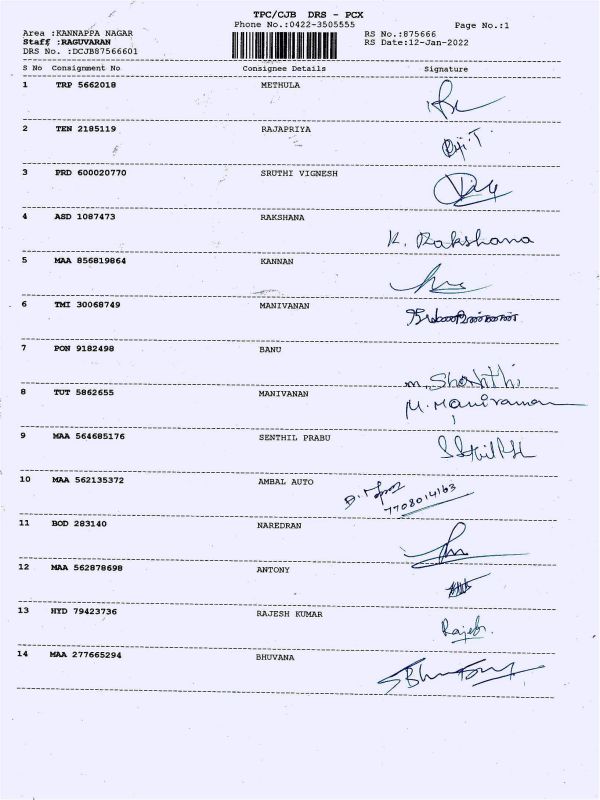 TPC/CJB DRS - PCX
Phone No.:0422-3505555 Page No.:1
Area :KANNAPPA NAGAR RS No.:875666
Staff :RAGUVARAN RS Date:12-Jan-2022
DRS No. :DCJB87566601
S No Consignment No Consignee Details Signature
1 TRP 5662018 METHULA
2 TEN 2185119 RAJAPRIYA
3 PRD 600020770 SRUTHI VIGNESH
4 ASD 1087473 RAKSHANA
K. Rakshana
5 MAA 856819864 KANNAN
6 TMI 30068749 MANIVANAN
7 PON 9182498 BANU
m. Shanthi
8 TUT 5862655 MANIVANAN
M. Manivanan
9 MAA 564685176 SENTHIL PRABU
10 MAA 562135372 AMBAL AUTO
7708014163
11 BOD 283140 NAREDRAN
12 MAA 562878698 ANTONY
13 HYD 79423736 RAJESH KUMAR
14 MAA 277665294 BHUVANA